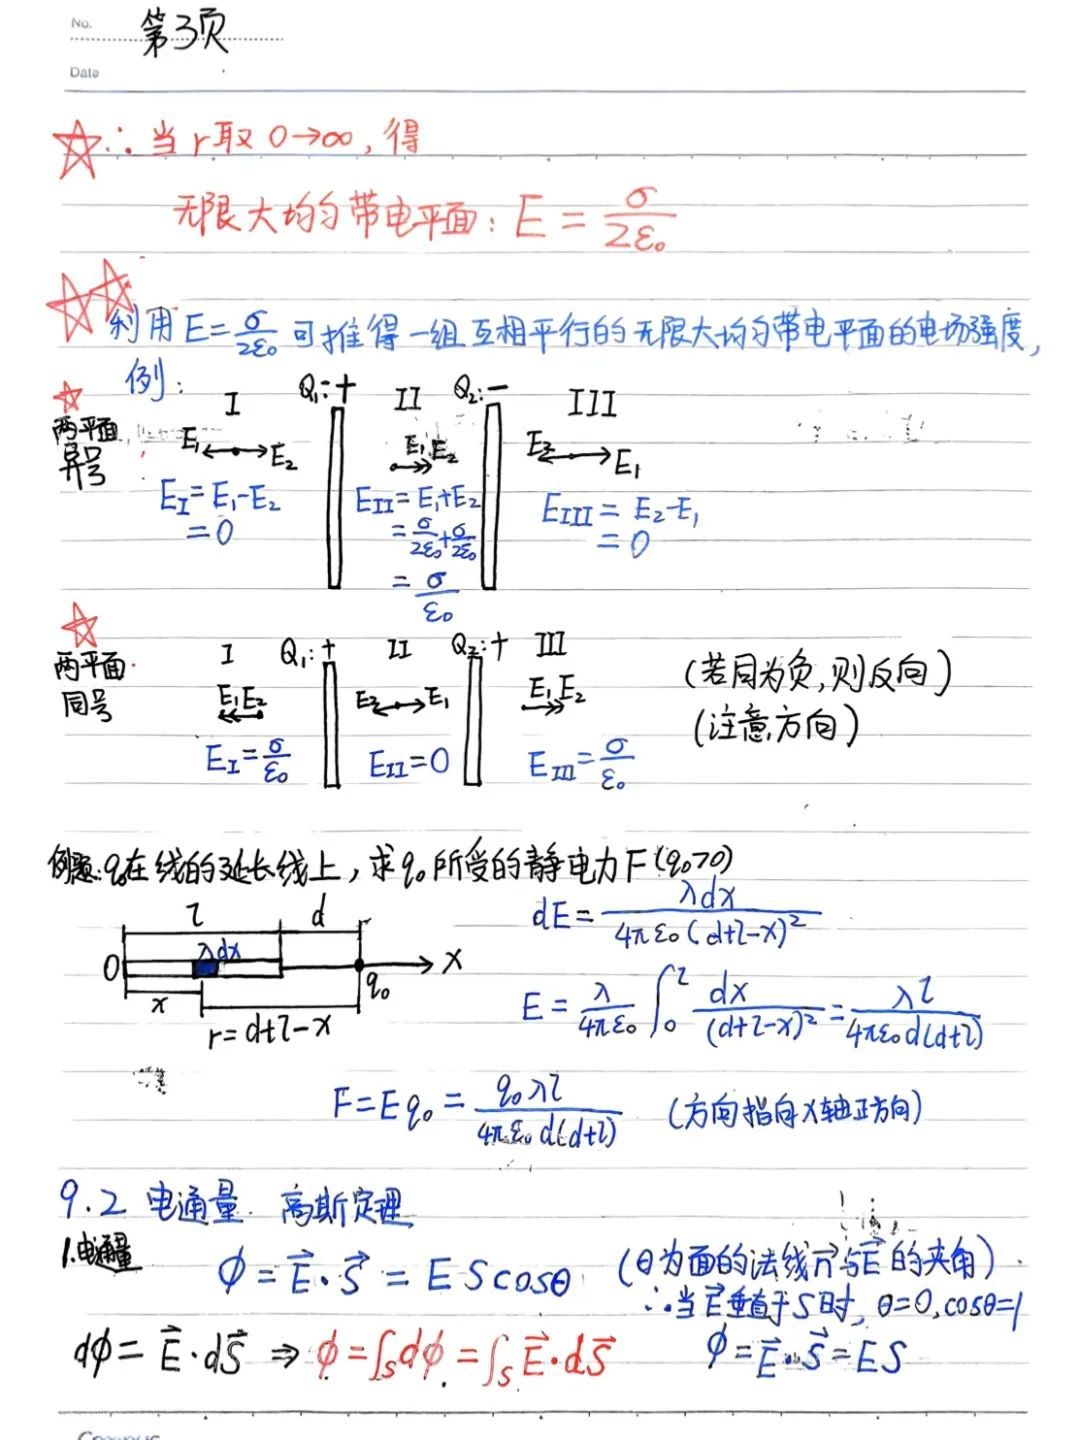 No. 第3页
Date
∴当r取0→∞,得
无限大均匀带电平面: E = σ/2ε₀
利用E=σ/2ε₀可推得一组互相平行的无限大均匀带电平面的电场强度,
例:
I Q₁:+ II Q₂:− III
两平面异号
E₁ E₂ E₁ E₂ E₂ E₁
E_I=E₁-E₂ E_II=E₁+E₂ E_III=E₂-E₁
=0 =σ/2ε₀+σ/2ε₀ =0
=σ/ε₀
两平面同号
I Q₁:+ II Q₂:+ III
(若同为负,则反向)
E₁ E₂ E₂ E₁ E₁ E₂
(注意方向)
E_I=σ/ε₀ E_II=0 E_III=σ/ε₀
例题:q₀在线的延长线上,求q₀所受的静电力F(q₀>0)
l d
λdx
O x q₀ X
r=d+l-x
dE=λdx/4πε₀(d+l-x)²
E=λ/4πε₀ ∫₀ˡ dx/(d+l-x)²=λl/4πε₀d(d+l)
F=Eq₀=q₀λl/4πε₀d(d+l) (方向指向X轴正方向)
9.2 电通量 高斯定理
1.电通量
ϕ=E⃗·S⃗=EScosθ (θ为面的法线n⃗与E⃗的夹角)
∴当E⃗垂直于S时, θ=0,cosθ=1
dϕ=E⃗·dS⃗ ⇒ ϕ=∫ₛdϕ=∫ₛE⃗·dS⃗ ϕ=E⃗·S⃗=ES